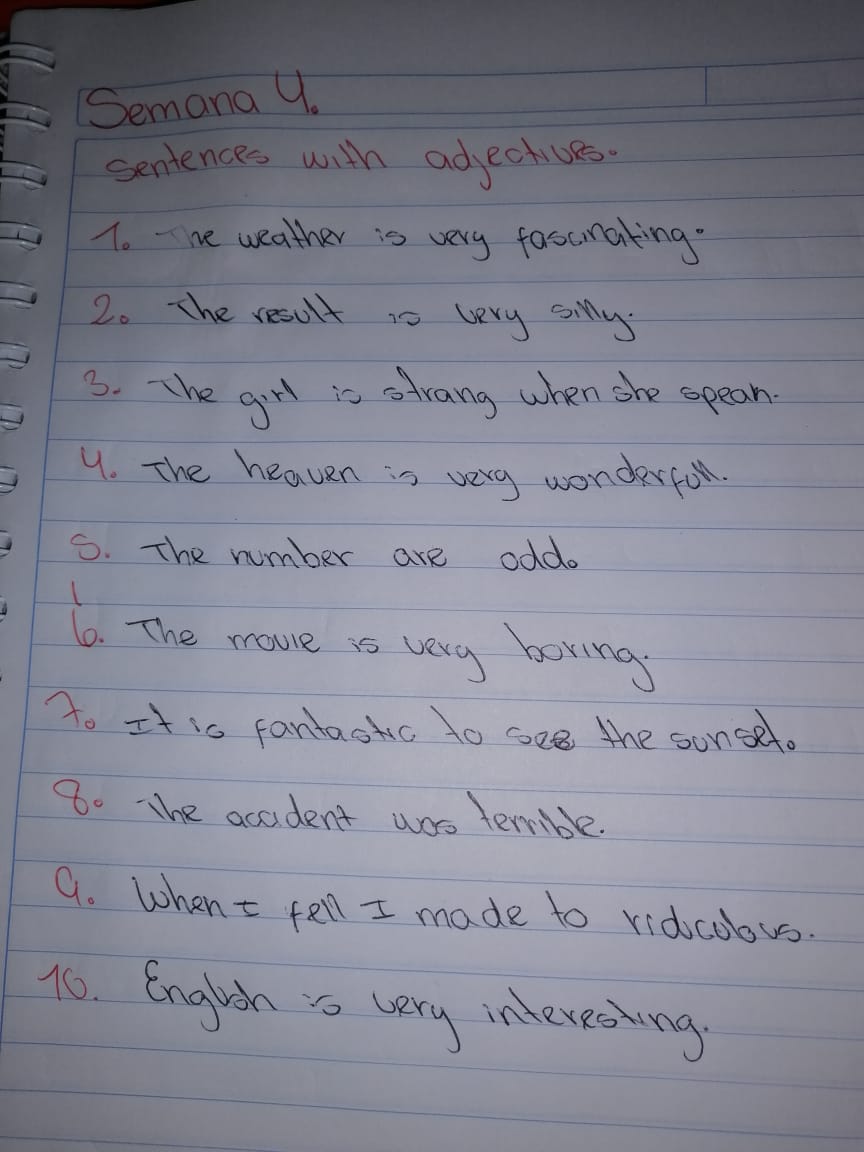 Semana 4.
Sentences with adjectives.
1. The weather is very fascinating.
2. The result is very silly.
3. The girl is strang when she speak.
4. The heaven is very wonderfull.
5. The number are odd.
6. The movie is very boring.
7. It is fantastic to see the sunset.
8. The accident was terrible.
9. When I fell I made to ridiculous.
10. English is very interesting.